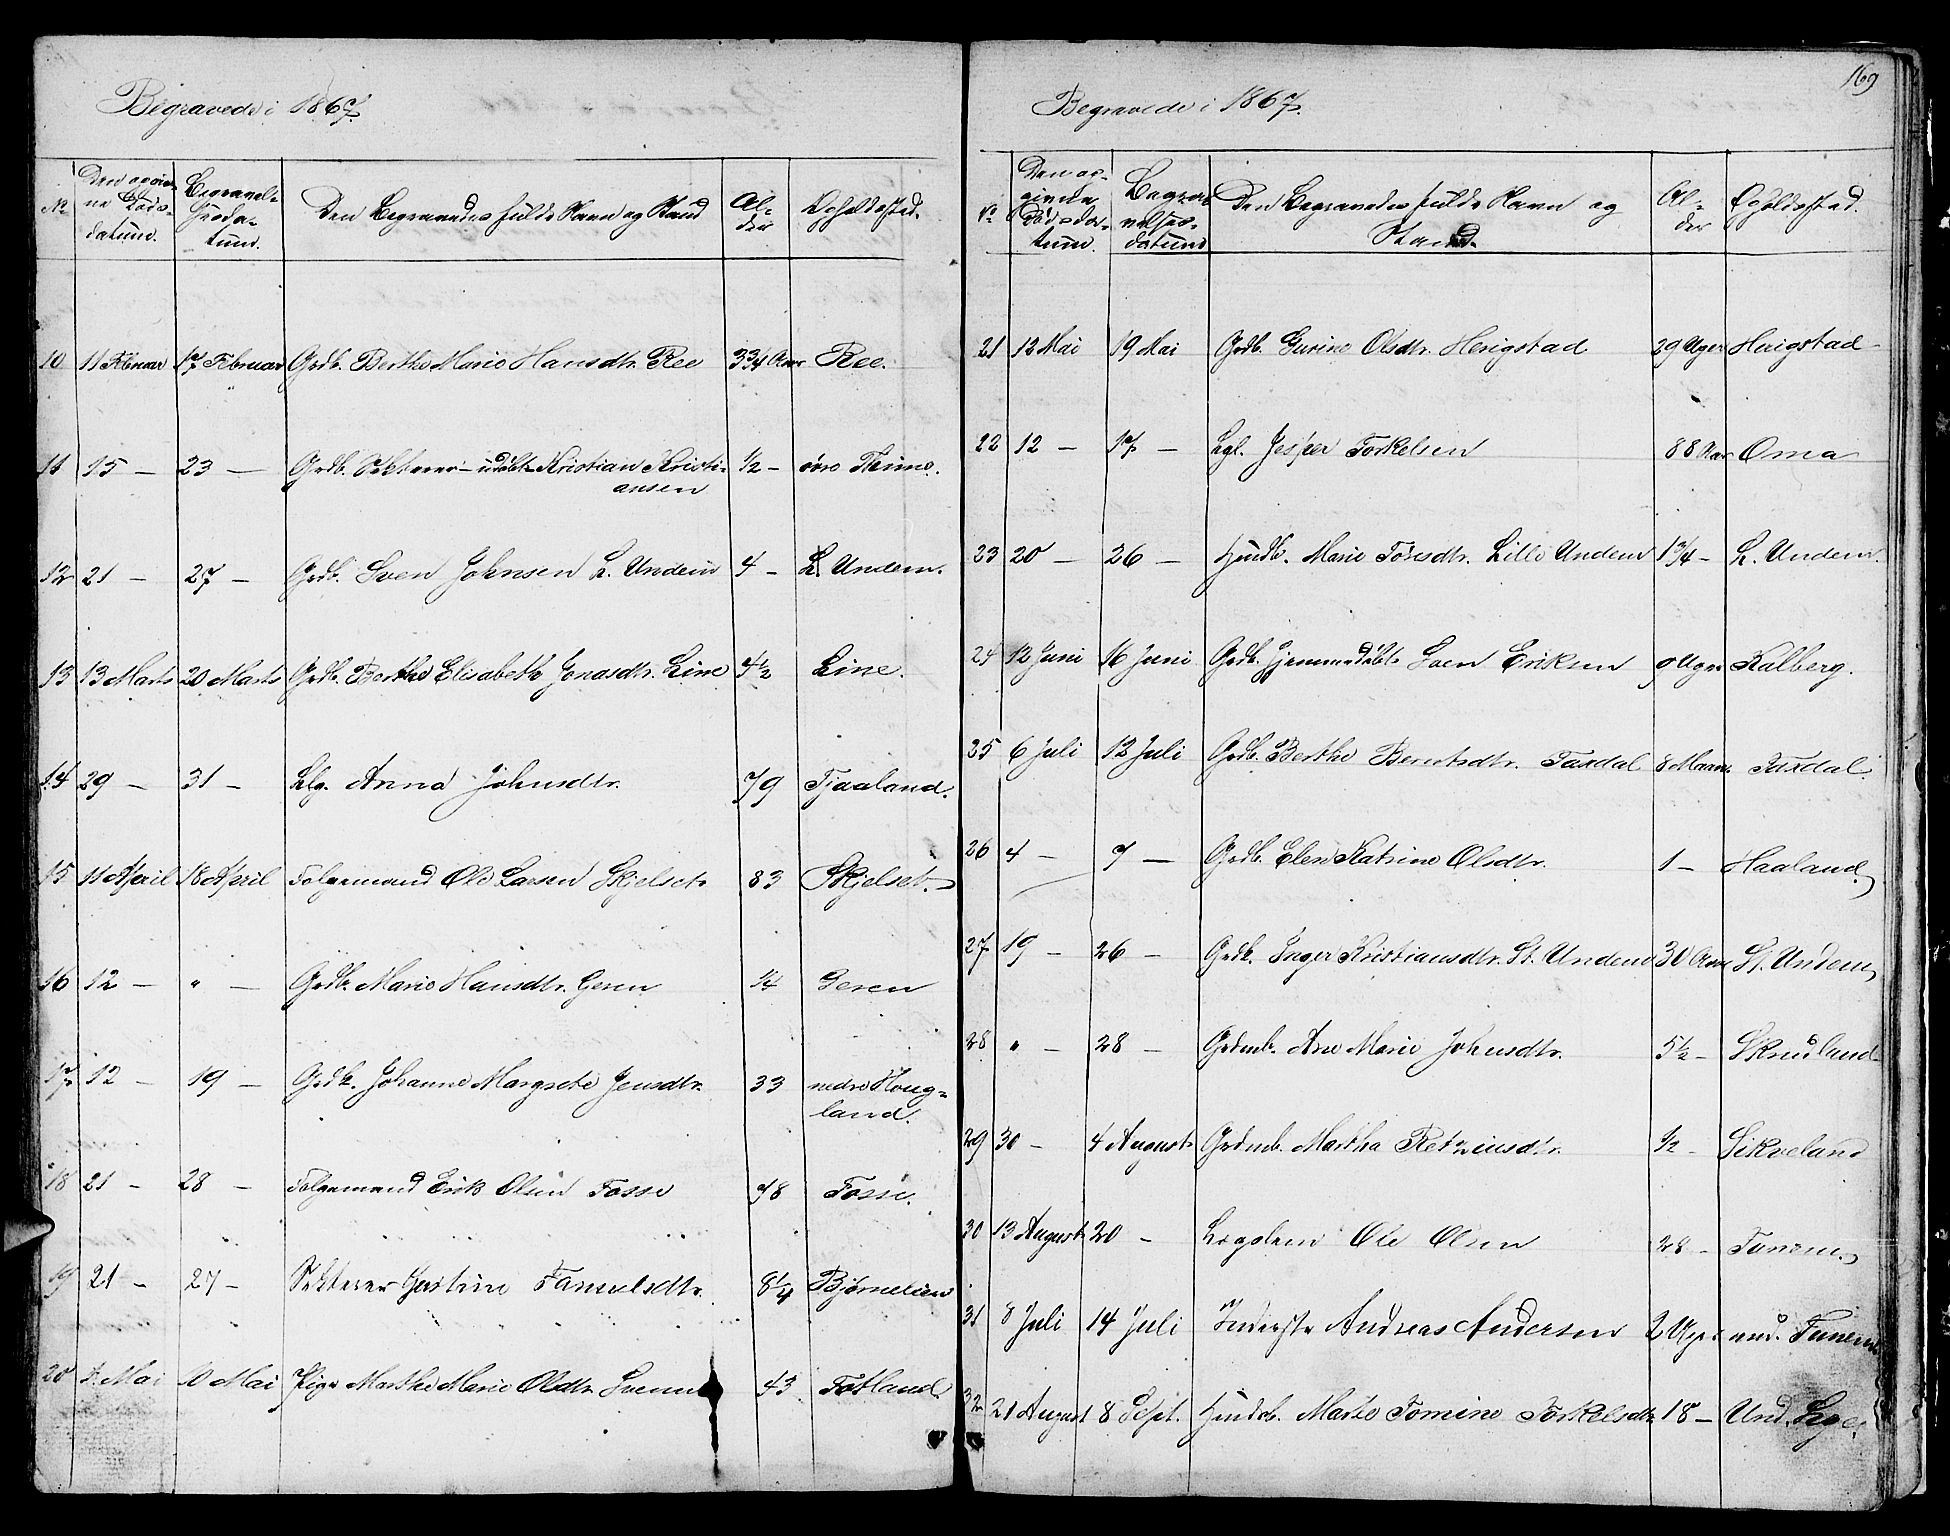 Begravede i 1867.
No Den opgivne Dødsdatum. Begravelsesdatum. Den Begravedes fulde Navn og Stand Alder Opholdssted.
10 11 Februar 17 Februar Grdb. Berthe Marie Hansdtr. Ree 3 3/4 Aar Ree.
11 15 — 23 — Grdb. udøbt Kristian Kristi- 1/2 — øvre Thime.
ansen
12 21 — 27 — Grdb. Sven Johnsen L. Undem 4 — L. Undem.
13 13 Marts 20 Marts Grdb. Berthe Elisabeth Jonasdtr. Line 4 1/2 Line.
14 29 — 31 — Lg. Anna Johnsdtr. 79 Tjaaland.
15 11 April 18 April Folgemand Ole Larsen Skjelset 83 Skjelset.
16 12 — " — Grdb. Marie Hansdtr. Geren 1/4 Geren
17 12 — 19 — Grdk. Johanne Margrete Jensdtr. 33 nedre Houg-
land.
18 21 — 28 — Folgemand Erik Olsen Fosse 78 Fosse.
19 21 — 27 — 8 1/4 Bjørnelien
20 4 Mai 10 Mai Pige Marthe Marie Olsdtr. 43 Fotland.
169
Begravede i 1867.
No Den opgivne Dødsdatum. Begravelsesdatum Den Begravedes fulde Navn og Alder Opholdssted.
Stand.
21 12 Mai 19 Mai Grdb. Gurine Olsdtr. Herigstad 29 Uger Herigstad
22 12 — 17 — Lgl. Jesper Torkelsen 88 Aar Oma
23 20 — 26 — Husdb. Marie Toresdtr. Lille Undem 1 3/4 — L. Undem.
24 12 Juni 16 Juni Grdb. hjemmedøbt Sven Eriksen 9 Uger Kalberg.
25 6 Juli 12 Juli Grdb. Berthe Berntsdtr. Taxdal 8 Maan. Taxdal.
26 4 — 7 — Grdb. Elen Katrine Olsdtr. 1 — Haaland.
27 19 — 26 — Grdk. Inger Kristiansdtr. St. Undem 30 Aar St. Undem
28 " — 28 — Grdmb. Ane Marie Johnsdtr. 5 1/2 — Skruland
29 30 — 4 August Grdmb. Martha Retziusdtr. 1/2 — Sikveland
30 13 August 20 — Lægdslem Ole Olsen 28 —
31 8 Juli 14 Juli Inderste Andreas Andersen 2 Uger und.
32 21 August 8 Sept. Husdb. Marte Tomine Torkelsdtr 18 — Und. Lye.